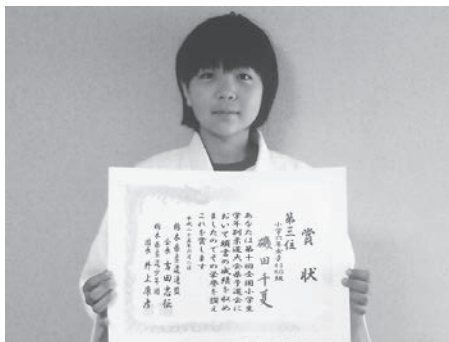 賞状
第三位
小学六年女子40kg級
磯田千夏
あなたは第十回全国小学生
学年別柔道大会県予選会に
おいて頭書の成績を収め
ましたのでその栄誉を讃え
これを賞します
平成二十五年六月
栃木県柔道連盟
会長
栃木県柔道少年団
団長 井上康彦